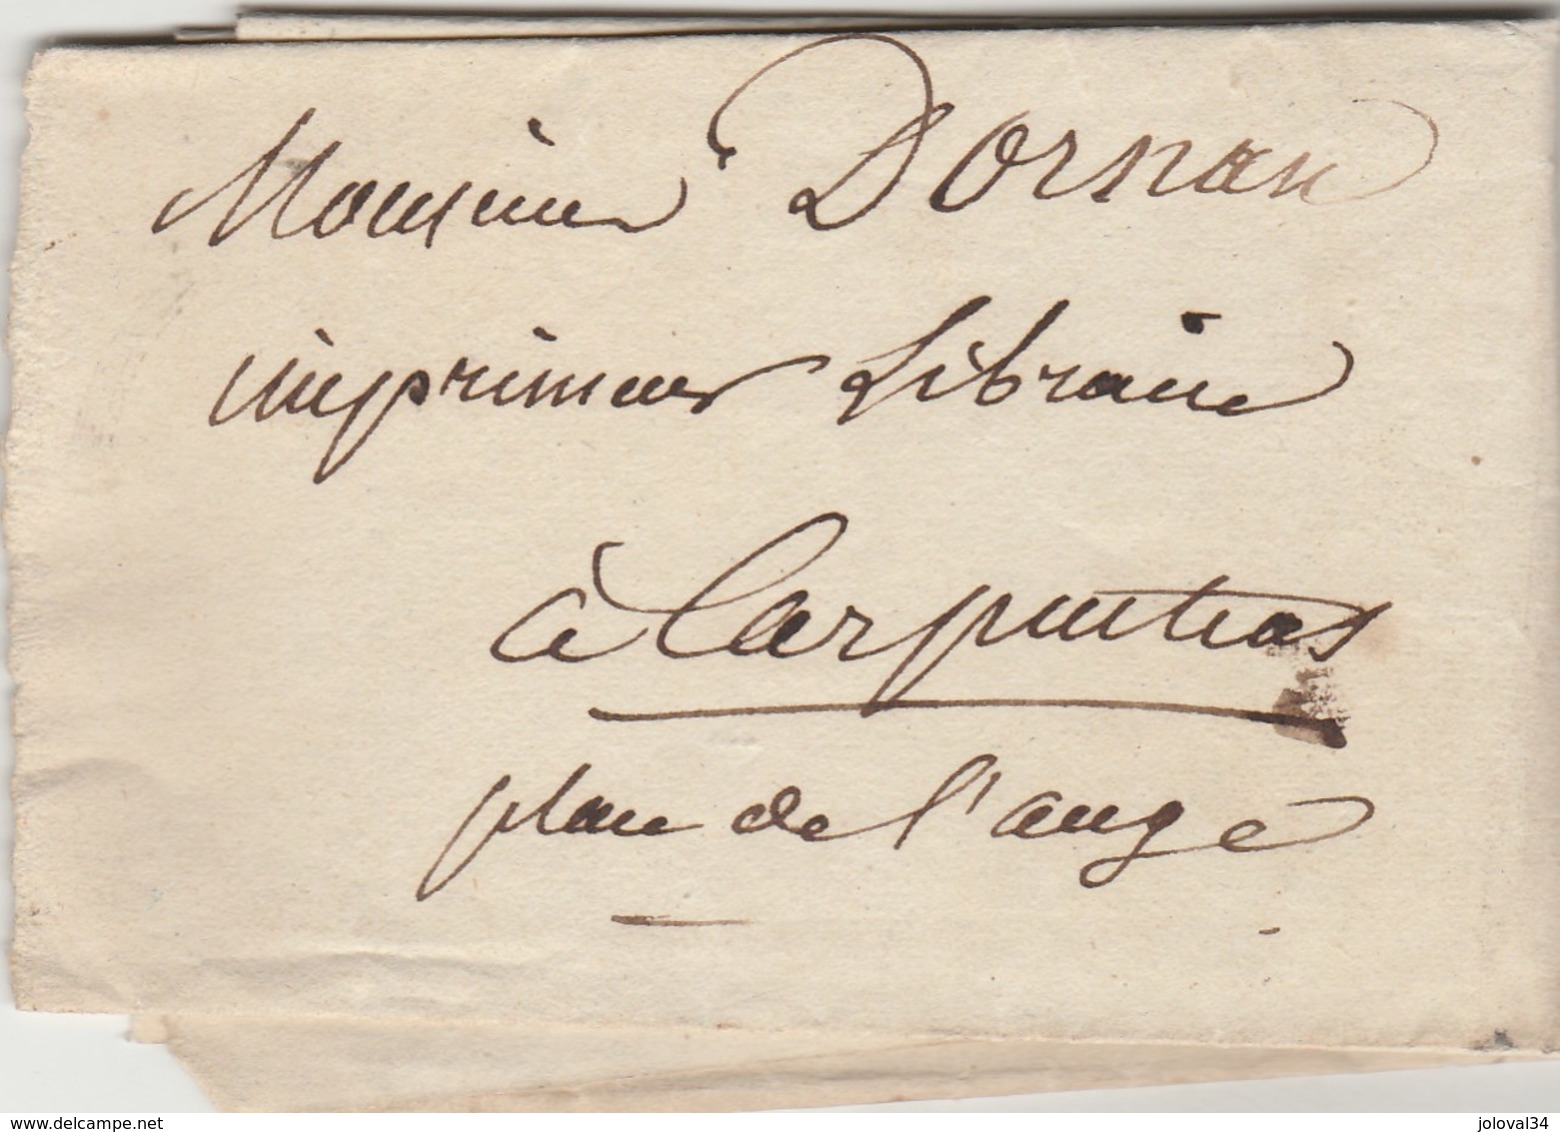 Monsieur Dornan
imprimeur Libraire
à Carpentras
place de l'ange
delcampe.net
joloval34